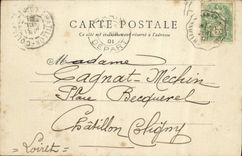 CARTE POSTALE
Ce côté est exclusivement réservé à l'adresse
DÉPART
01
Madame
Cagnat-Méchin
Place Becquerel
Châtillon Coligny
(Loiret)